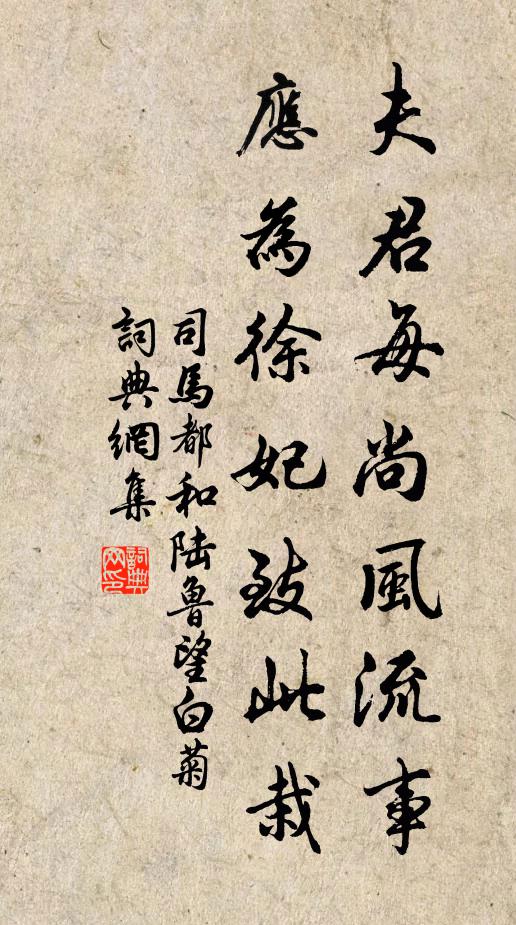 夫君每尚風流事
應為徐妃致此栽
司馬都和陆魯望白菊
詞典網集
詞典网印